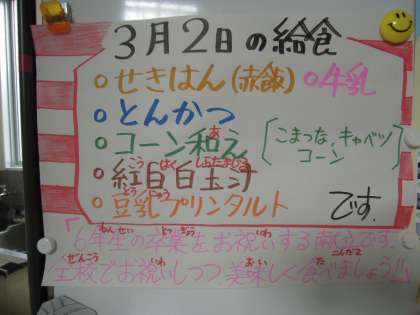 3月2日の給食
○せきはん(赤飯) ○牛乳
○とんかつ
○コーン和え [こまつな、キャベツ コーン]
○紅白白玉汁
○豆乳プリンタルト です。
「6年生の卒業をお祝いする献立です。
全校でお祝いしつつ、美味しく食べましょう!!」